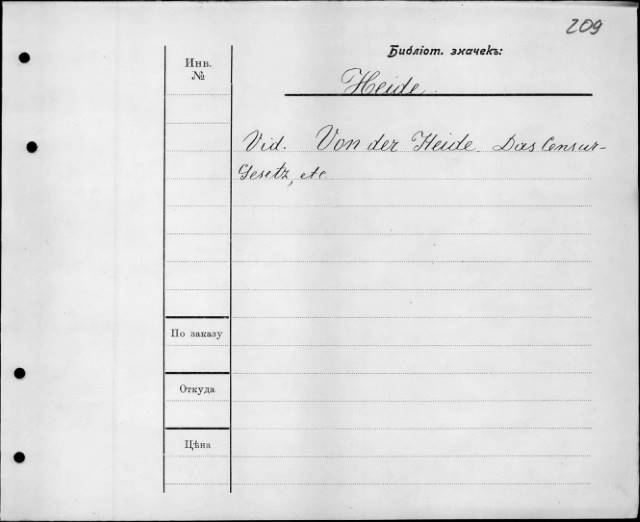 209
Библіот. значекъ:
Инв.
№
Heide
Vid. Von der Heide. Das Censur-
Gesetz, etc
По заказу
Откуда
Цѣна